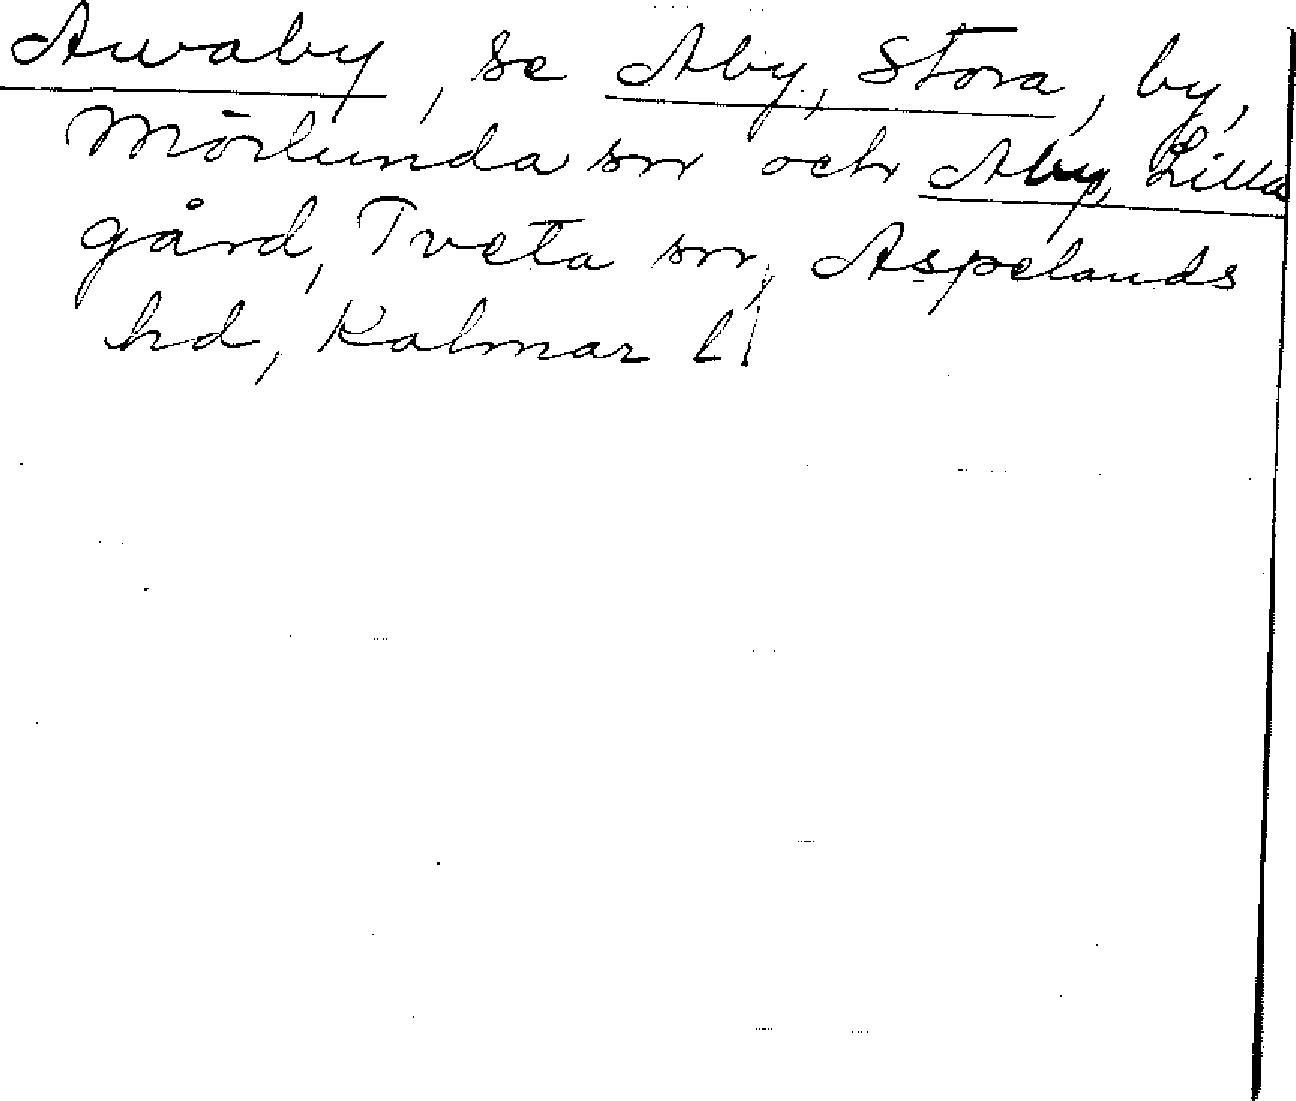 Awaby, se Aby, Stora, by,
Mörlunda sn och Aby, Lilla
gård, Tveta sn, Aspelands
hd, Kalmar l.